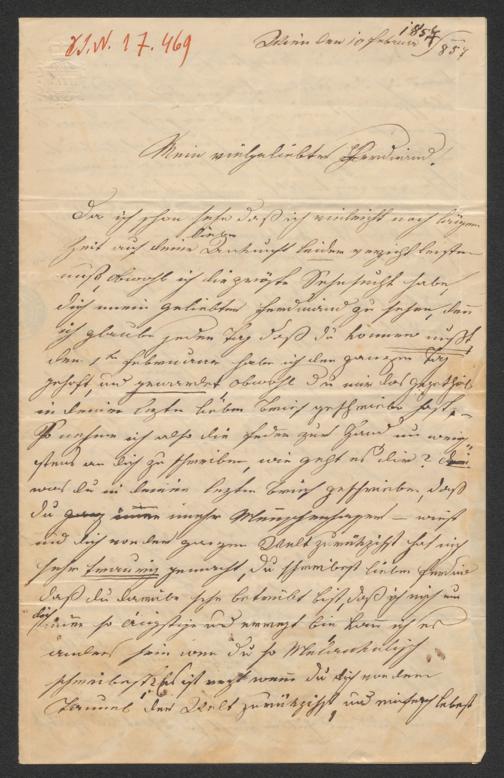 I.N. 17.469
Wien den 10 Februar 1857
1857
Mein vielgeliebter Ferdinand!
Da ich schon sehe daß ich vieleicht noch länger
Zeit auf deine liebe Ankunft leider verzicht leisten
muß, obwohl ich die größte Sehnsucht habe,
dich mein geliebter Ferdinand zu sehen, den
ich glaube jeden Tag daß du kommen mußt,
den 1ten Februar habe ich den ganzen Tag
gehoft, und gewartet obwohl du mir das Gegentheil
in deinen lezten lieben Brief geschrieben hast,
So nehme ich also die Feder zur Hand um wenig-
stens an dich zu schreiben, wie geht es dir?
was du in deinen lezten Brief geschrieben, daß
du immer mehr Menschenhasser wirst
und dich von der ganzen Welt zurükziehst hat mich
sehr traurig gemacht, du schreibest lieber Ferdinand
daß du darüber sehr betrübt bist, daß ich mich um
dich immer so ängstige und erregt bin kann ich es
anders sein wen du so Melancholisch
schreibest, Es ist recht wenn du dich von dem
Taumel der Welt zurükziehst, und einfach lebest